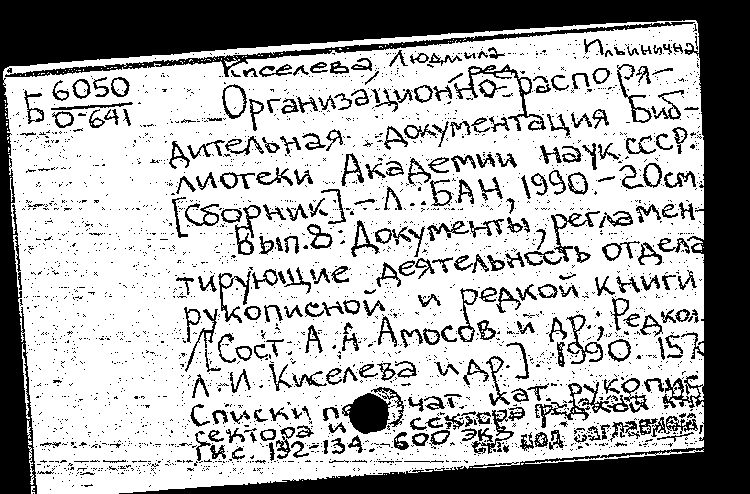 Киселева, Людмила Ильинична
ред.
Б 6050
0-641
Организационно-распоря-
дительная документация Биб-
лиотеки Академии наук СССР.
[Сборник]. - Л.: БАН, 1990. - 20см.
Вып. 8: Документы, регламен-
тирующие деятельность отдела
рукописной и редкой книги
/[Сост. А. А. Амосов и др.; Редкол.
Л. И. Киселева и др.]. 1990. 157с
Списки печат. кат. рукопис.
сектора и сектора редкой кни
ги с. 132-134. 600 экз.
см. под заглавием